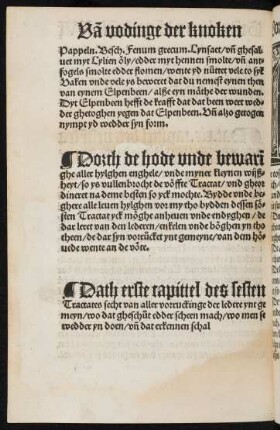 Vā vodinge der knoken
Pappeln. Besch. Fenum grecum. Lynsaet/ vñ ghesal-
uet myt Lylien öly/ edder myt hennen smolte/ vñ ant-
fogels smolte edder flomen/ wente yd nütter vele to syk
Baken vnde vele ys beweret dat du nemest eynen then
van eynem Elpenbeen/ alße eyn mäthe der wunden.
Dyt Elpenbeen hefft de krafft dat dat been weer wed-
der ghetoghen yegen dat Elpenbeen. Vñ alzo getogen
nympt yd wedder syn form.
Dorch de hode vnde bewarī
ghe aller hylghen enghele/ vnde myner kleynen wijß-
heyt/ so ys vullenbrocht de vöffte Tractat/ vnd gheor
dineret na deme besten so yck mochte. Bydde vnde be
ghere alle leuen hylghen vor my tho bydden dessen sös-
sten Tractat yck möghe anheuen vnde endyghen/ de
dar leret van den lederen/ enkelen vnde böghen yn tho
theen/ de dar syn votrücket ynt gemeyne/ van dem hö-
uede wente an de vöte.
Dath erste capittel des sesten
Tractates secht van aller votruckinge der ledere ynt ge
meyn/ wo dat gheschüt edder scheen mach/ wo men se
wedder yn doen/ vñ dat erkennen schal